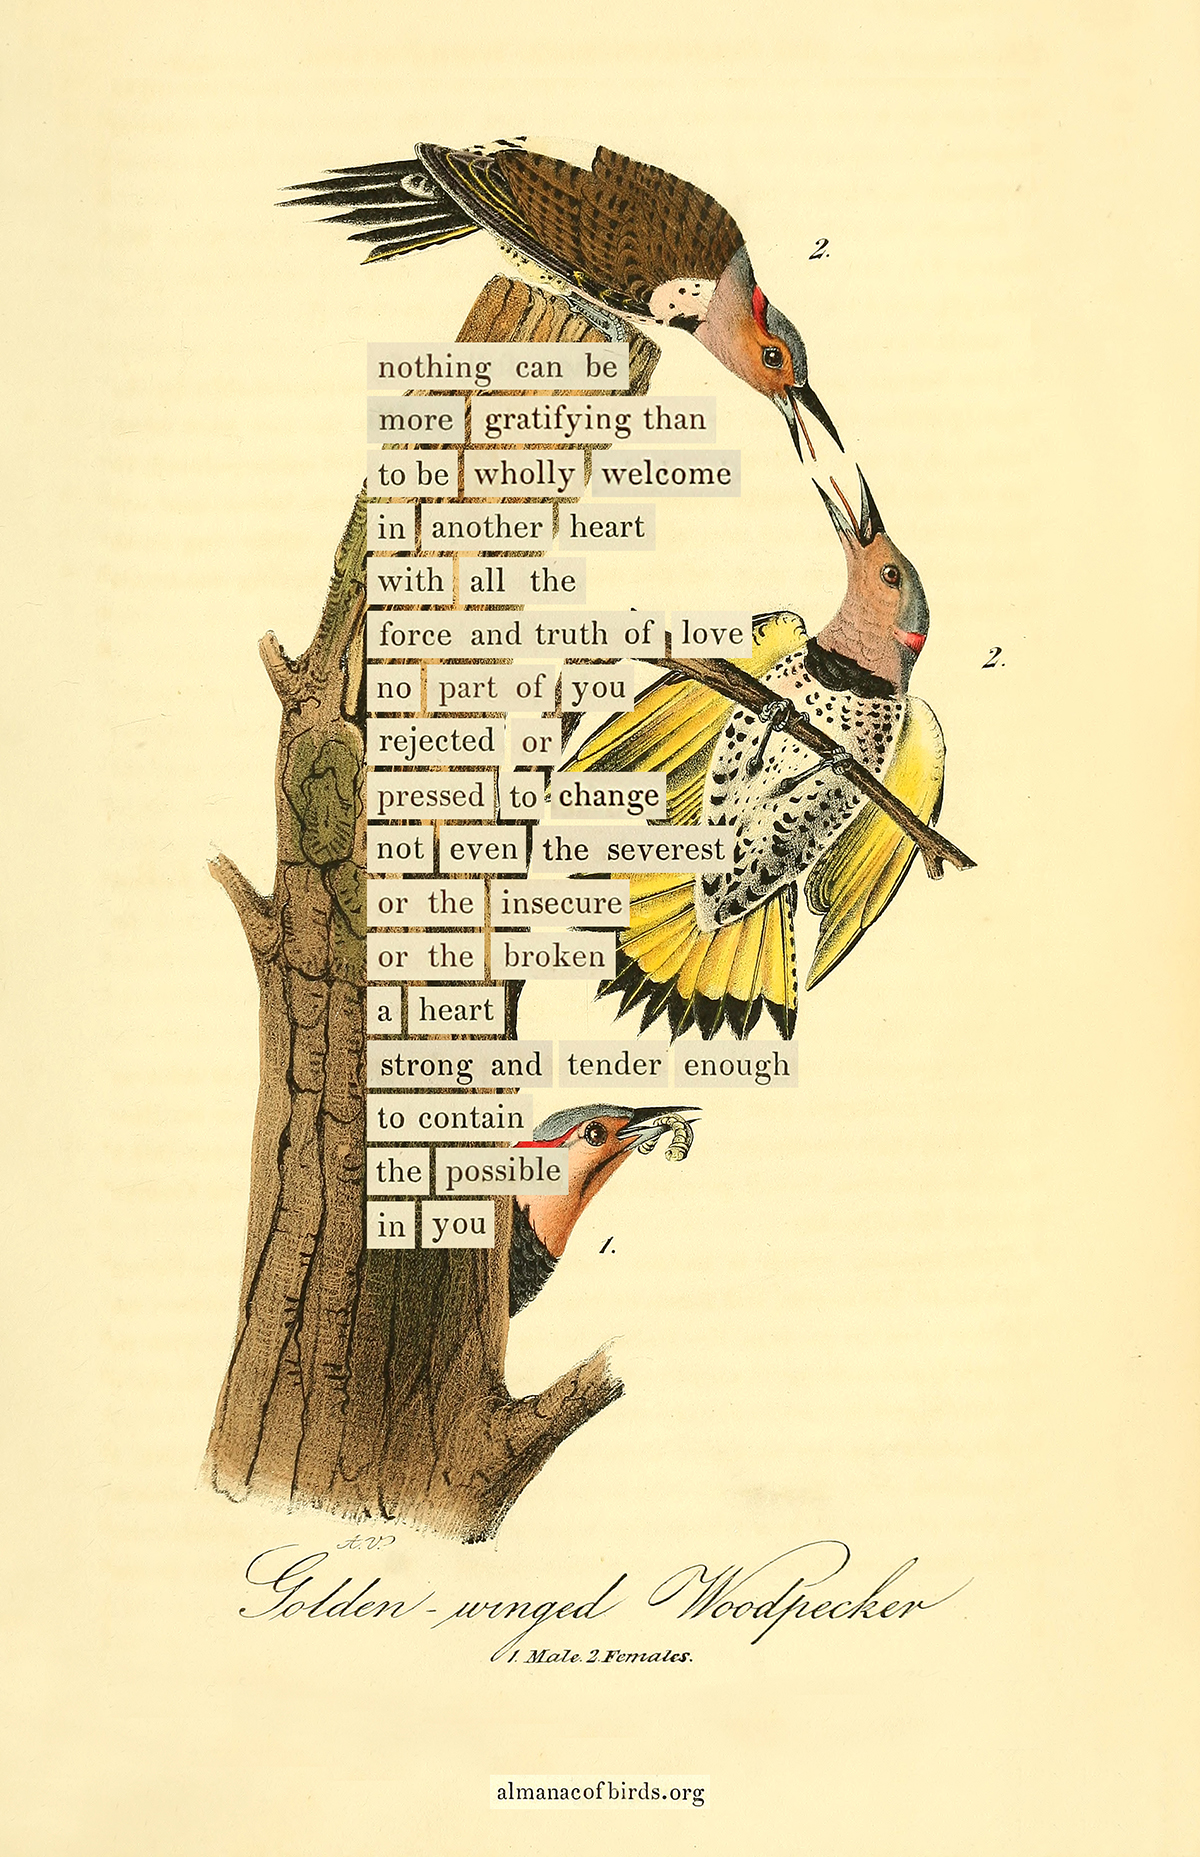 2.
nothing can be
more gratifying than
to be wholly welcome
in another heart
with all the
force and truth of love
2.
no part of you
rejected or
pressed to change
not even the severest
or the insecure
or the broken
a heart
strong and tender enough
to contain
the possible
in you
1.
A.V.
Golden-winged Woodpecker
1. Male. 2. Females.
almanacofbirds.org